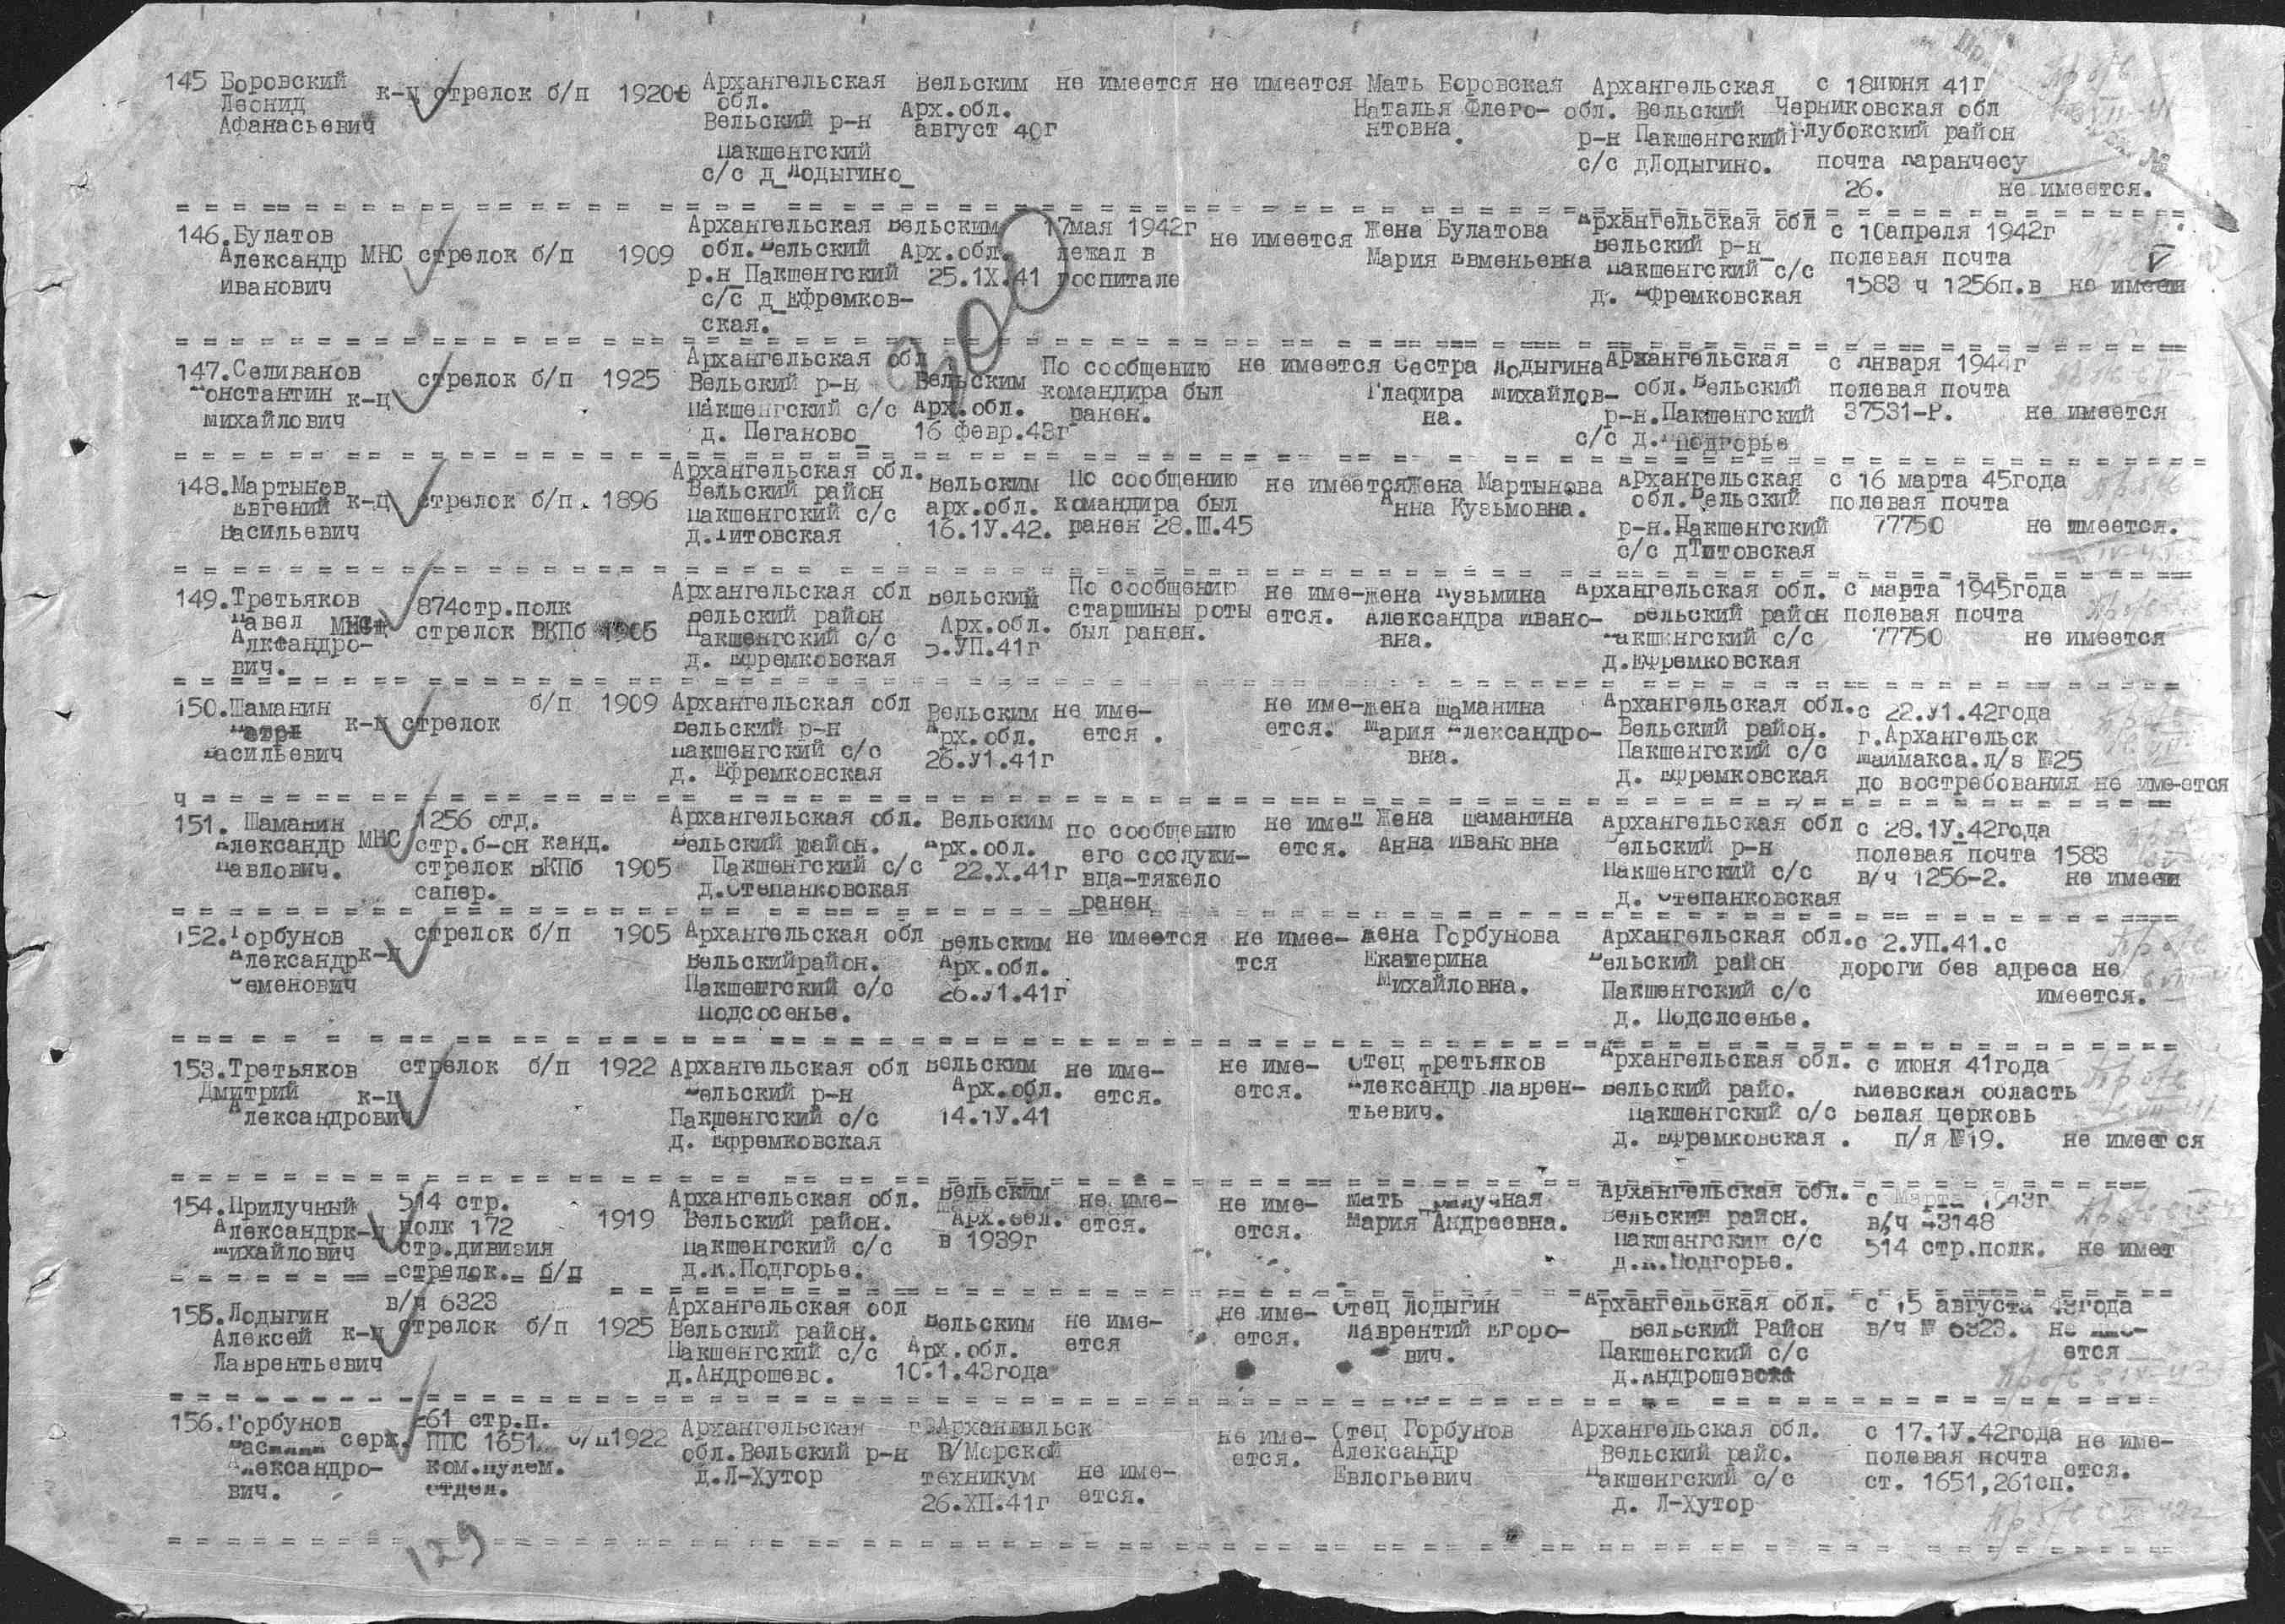 145 Боровский Леонид Афанасьевич к-ц стрелок б/п 1920 Архангельская обл. Вельский р-н Пакшенгский с/с д Лодыгино Вельским Арх.обл. август 40г не имеется не имеется Мать Боровская Наталья Флего-нтовна. Архангельская обл. Вельский р-н Пакшенгский с/с дЛодыгино. с 18июня 41г Черниковская обл Глубокский район почта Таранчесу 26. не имеется.
146.Булатов Александр Иванович МНС стрелок б/п 1909 Архангельская обл.Вельский р.н Пакшенгский с/с д Ефремков-ская. Вельским Арх.обл. 25.1Х.41 17мая 1942г лежал в госпитале не имеется Жена Булатова Мария Евменьевна Архангельская обл Вельский р-н Пакшенгский с/с д. Ефремковская с 10апреля 1942г полевая почта 1583 ч 1256п.в не имеет
147.Селиванов Константин Михайлович к-ц стрелок б/п 1925 Архангельская обл Вельский р-н Пакшенгский с/с д. Пеганово Вельским Арх.обл. 16 февр.43г По сообщению командира был ранен. не имеется Сестра Лодыгина Глафира Михайлов-на. Архангельская обл.Вельский р-н.Пакшенгский с/с д.Подгорье с января 1944г полевая почта 37531-Р. не имеется
148.Мартынов Евгений Васильевич к-ц стрелок б/п. 1896 Архангельская обл. Вельский район Пакшенгский с/с д.Титовская Вельским арх.обл. 16.1У.42. По сообщению командира был ранен 28.Ш.45 не имеется Жена Мартынова Анна Кузьмовна. Архангельская обл.Вельский р-н.Пакшенгский с/с дТитовская с 16 марта 45года полевая почта 77750 не имеется.
149.Третьяков Павел Алксандро-вич. МНС 874стр.полк стрелок ВКПб 1905 Архангельская обл Вельский район Пакшенгский с/с д. Ефремковская Вельский Арх.обл. 5.УП.41г По сообщению старшины роты был ранен. не име-ется. Жена Кузьмина Александра Ивано-вна. Архангельская обл. Вельский район Пакшнгский с/с д.Ефремковская с марта 1945года полевая почта 77750 не имеется
150.Шаманин Петр Васильевич к-ц стрелок б/п 1909 Архангельская обл Вельский р-н Пакшенгский с/с д. Ефремковская Вельским Арх.обл. 26.У1.41г не име-ется . не име-ется. Жена Шаманина Мария Александро-вна. Архангельская обл. Вельский район. Пакшенгский с/с д. Ефремковская с 22.У1.42года г.Архангельск Маймакса.л/з №25 до востребования не име-ется
151. Шаманин Александр Павлович. МНС 1256 отд. стр.б-он канд. стрелок ВКПб сапер. 1905 Архангельская обл. Вельский район. Пакшенгский с/с д.Степанковская Вельским Арх.обл. 22.Х.41г по сообщению его сослужи-вца-тяжело ранен не име-ется. Жена Шаманина Анна Ивановна Архангельская обл Вельский р-н Пакшенгский с/с д. Степанковская с 28.1У.42года полевая почта 1583 в/ч 1256-2. не имеет
152.Горбунов Александр Семенович к-ц стрелок б/п 1905 Архангельская обл Вельскийрайон. Пакшенгский с/с Подсосенье. Вельским Арх.обл. 26.У1.41г не имеется не имее-тся Жена Горбунова Екатерина Михайловна. Архангельская обл. Вельский район Пакшенгский с/с д. Подслсенье. с 2.УП.41.с дороги без адреса не имеется.
153.Третьяков Дмитрий Александрович к-ц стрелок б/п 1922 Архангельская обл Вельский р-н Пакшенгский с/с д. Ефремковская Вельским Арх.обл. 14.1У.41 не име-ется. не име-ется. Отец Третьяков Александр Лаврен-тьевич. Архангельская обл. Вельский райо. Пакшенгский с/с д. Ефремковская . с июня 41года Киевская область Белая церковь п/я №19. не имеется
154.Прилучный Александр Михайлович к-ц 514 стр. полк 172 стр.дивизия стрелок. б/п 1919 Архангельская обл. Вельский район. Пакшенгский с/с д.К.Подгорье. Вельским Арх.обл. в 1939г не име-ется. не име-ется. Мать Прилучная Мария Андреевна. Архангельская обл. Вельский район. Пакшенгский с/с д.К.Подгорье. с Марта 1943г. в/ч 43148 514 стр.полк. не имет
155.Лодыгин Алексей Лаврентьевич к-ц в/ч 6323 стрелок б/п 1925 Архангельская обл Вельский район. Пакшенгский с/с д.Андрошево. Вельским Арх.обл. 10.1.43года не име-ется не име-ется. Отец Лодыгин Лаврентий Егоро-вич. Архангельская обл. Вельский Район Пакшенгский с/с д.Андрошевс с 15 августа 43года в/ч № 6323. не име-ется
156.Горбунов Василий Александро-вич. серж. 261 стр.п. ППС 1651 ком.пулем. отдел. б/п1922 Архангельская обл.Вельский р-н д.Л-Хутор г.Архангельск В/Морской техникум 26.ХП.41г не име-ется. не име-ется. Отец Горбунов Александр Евлогьевич Архангельская обл. Вельский райо. Пакшенгский с/с д. Л-Хутор с 17.1У.42года полевая почта ст. 1651,261сп. не име-ется.
129